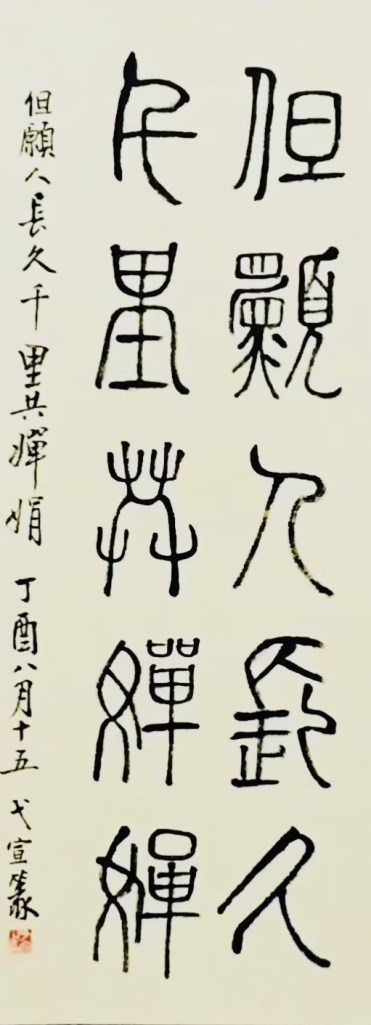 但願人長久
千里共嬋娟
但願人長久千里共嬋娟 丁酉八月十五 弋宣篆